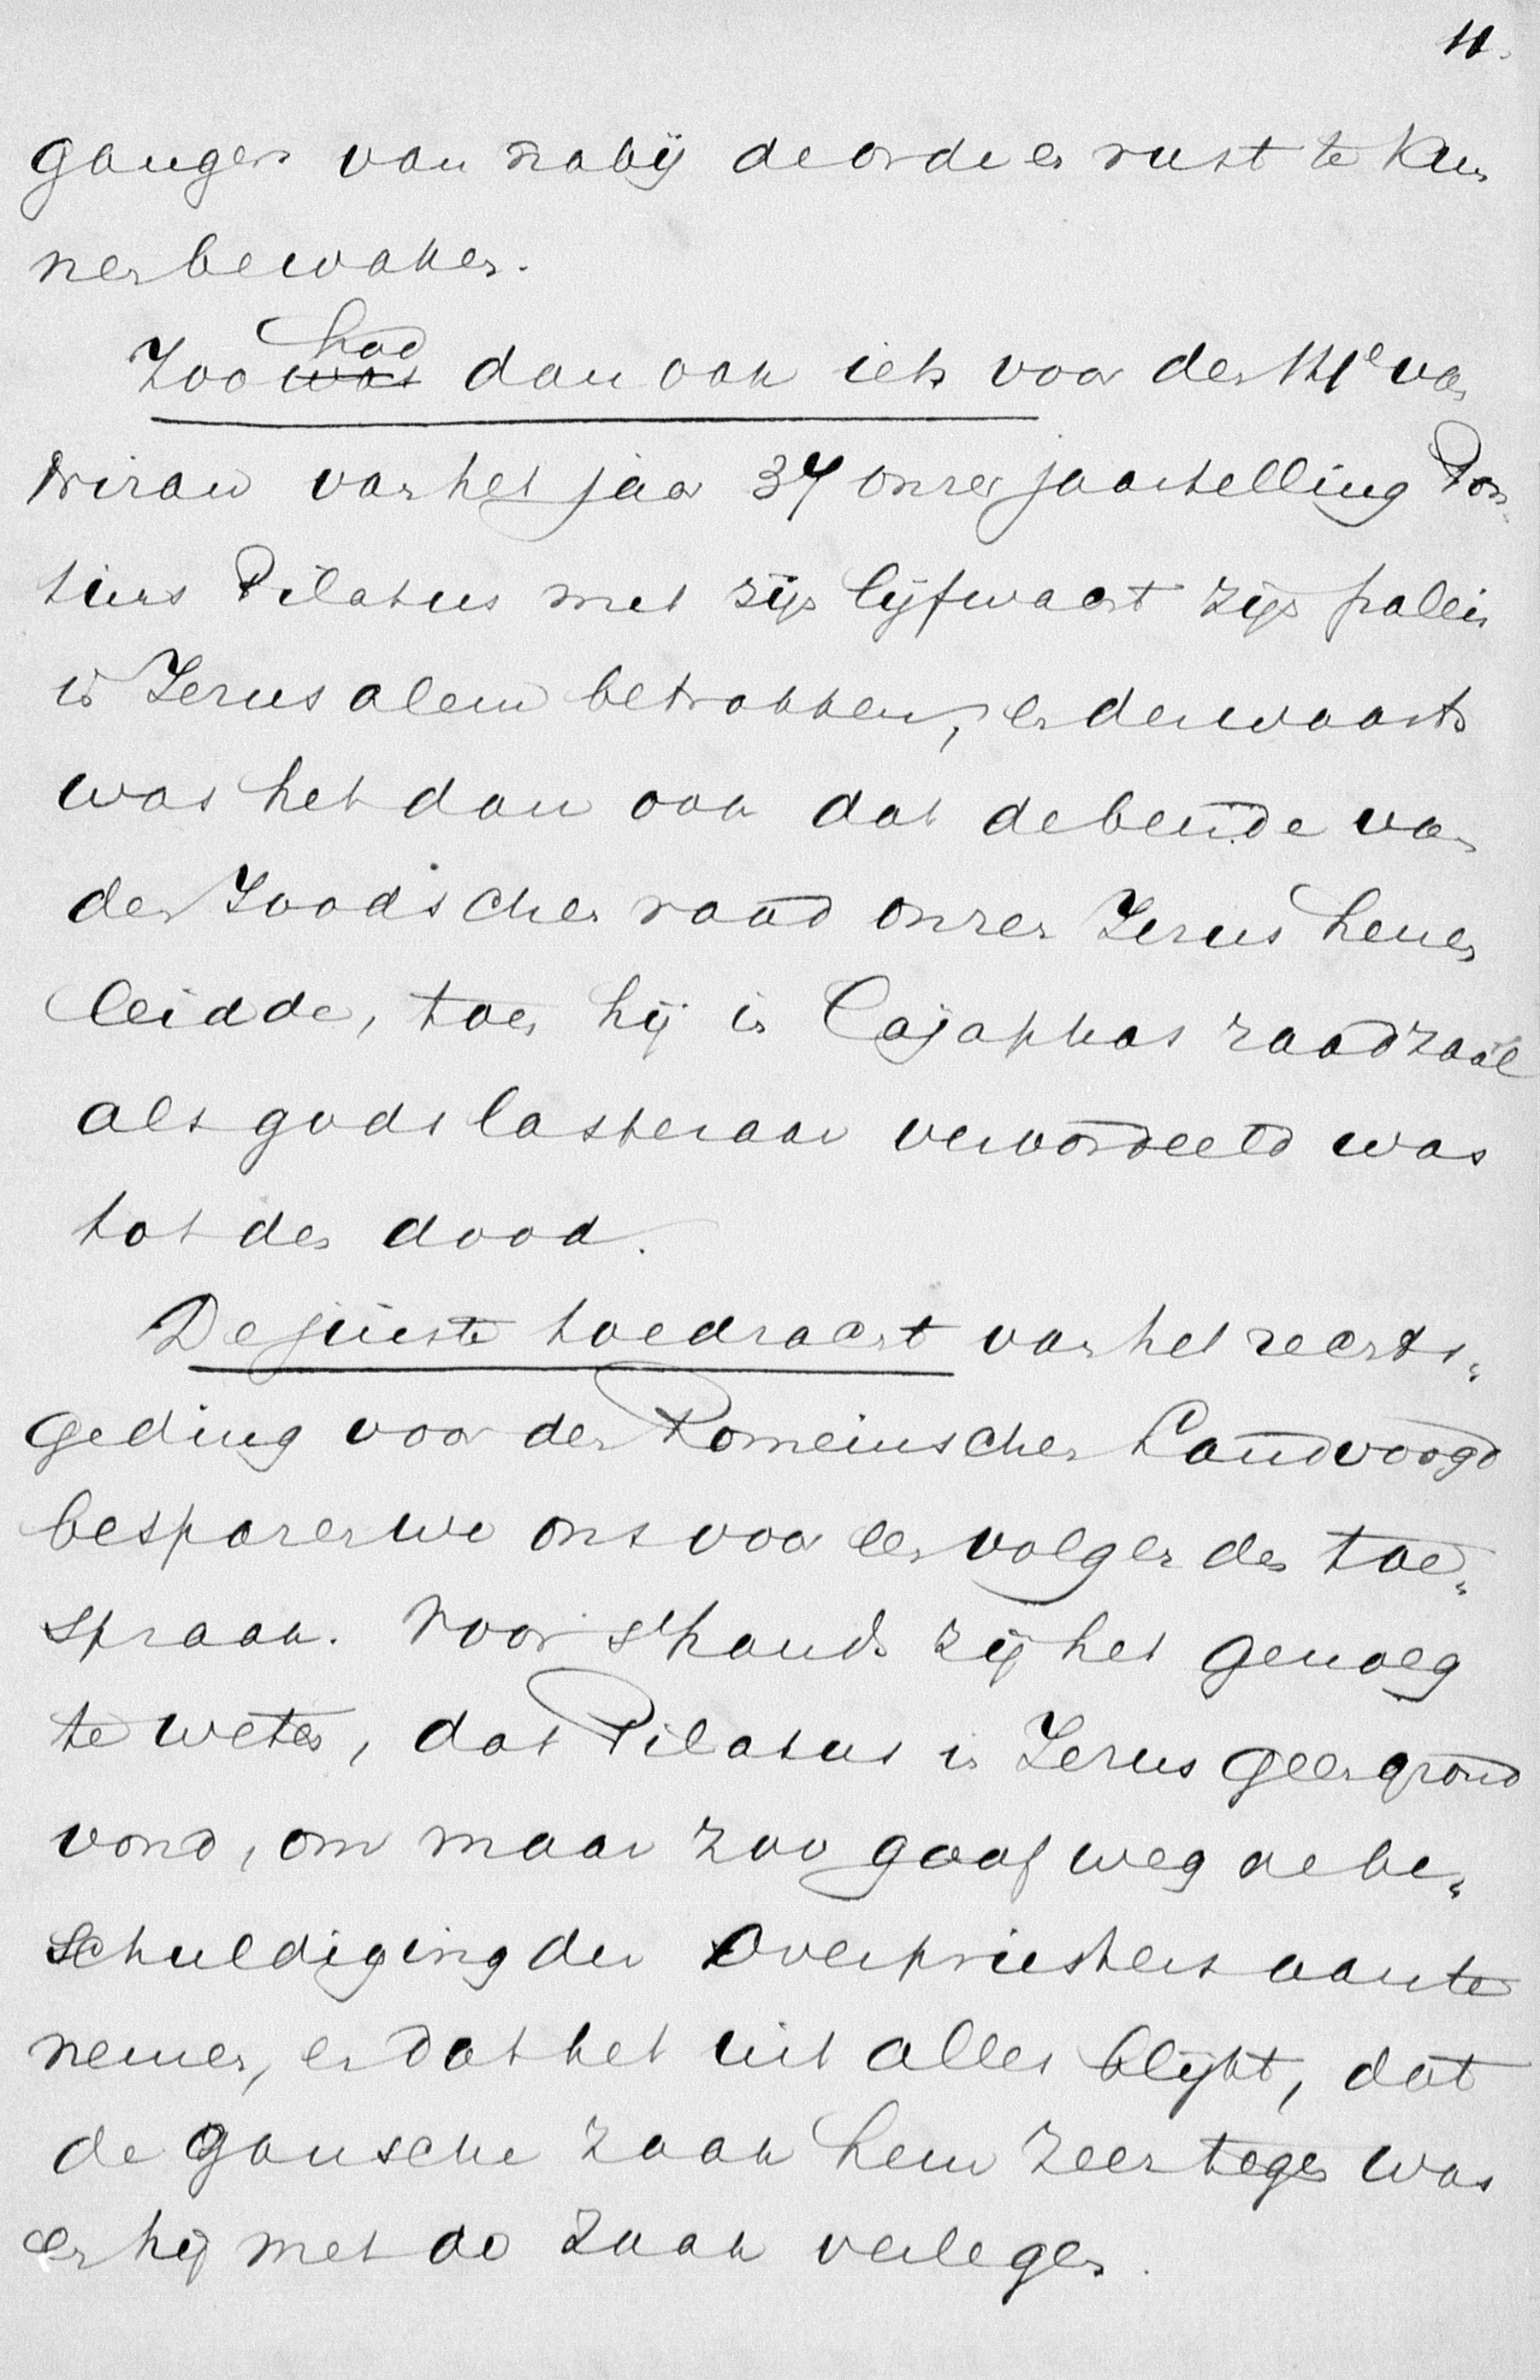 11.
gangers van nabij de orde en rust te kun
nen bewaken.
Zoo had dan ook iets voor den 14e van
Nisan van het jaar 34 onzer jaartelling Pon„
tius Pilatus met zijn lijfwacht zijn paleis
in Jerusalem betrokken, en derwaarts
was het dan ook dat de bende van
den Joodschen raad onzen Jezus henen
leidde, toen hij in Cajaphas raadzaal
als godslasteraar veroordeeld was
tot den dood.
De juiste toedracht van het rechts„
geding voor den Romeinschen Landvoogd
besparen we ons voor een volgende toe„
spraak. Voor s'hands zij het genoeg
te weten, dat Pilatus in Jezus geen grond
vond, om maar zoo gaaf weg de be„
schuldiging der Overpriesters aan te
nemen, en dat het uit alles blijkt, dat
de gansche zaak hem zeer tegen was
en hij met de zaak verlegen.